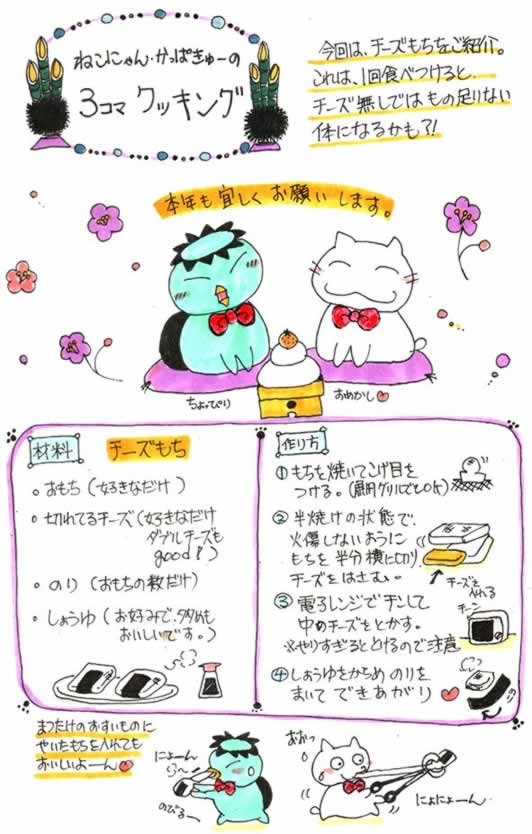 ねこにゃん・かっぱきゅーの
3コマ クッキング
今回は、チーズもちをご紹介。
これは、1回食べつけると、
チーズ無しではもの足りない
体になるかも?!
本年も宜しくお願いします。
ちょっぴり
おめかし
材料
チーズもち
おもち(好きなだけ)
切れてるチーズ(好きなだけ
ダブルチーズも
good!)
のり(おもちの数だけ)
しょうゆ(お好みで、多めも
おいしいです。)
作り方
① もちを焼いてこげ目を
つける。
② 半焼けの状態で、
火傷しないように
もちを半分横に切り、
チーズをはさむ。
チーズを
入れる
③ 電子レンジでチンして
中のチーズをとかす。
※やりすぎるととけるので注意
チーン
④ しょうゆをからめ のりを
まいて できあがり
まつたけのおすいものに
やいたもちを入れても
おいしいよーん
にょーん
のびるー
おおっ
にょにょーん